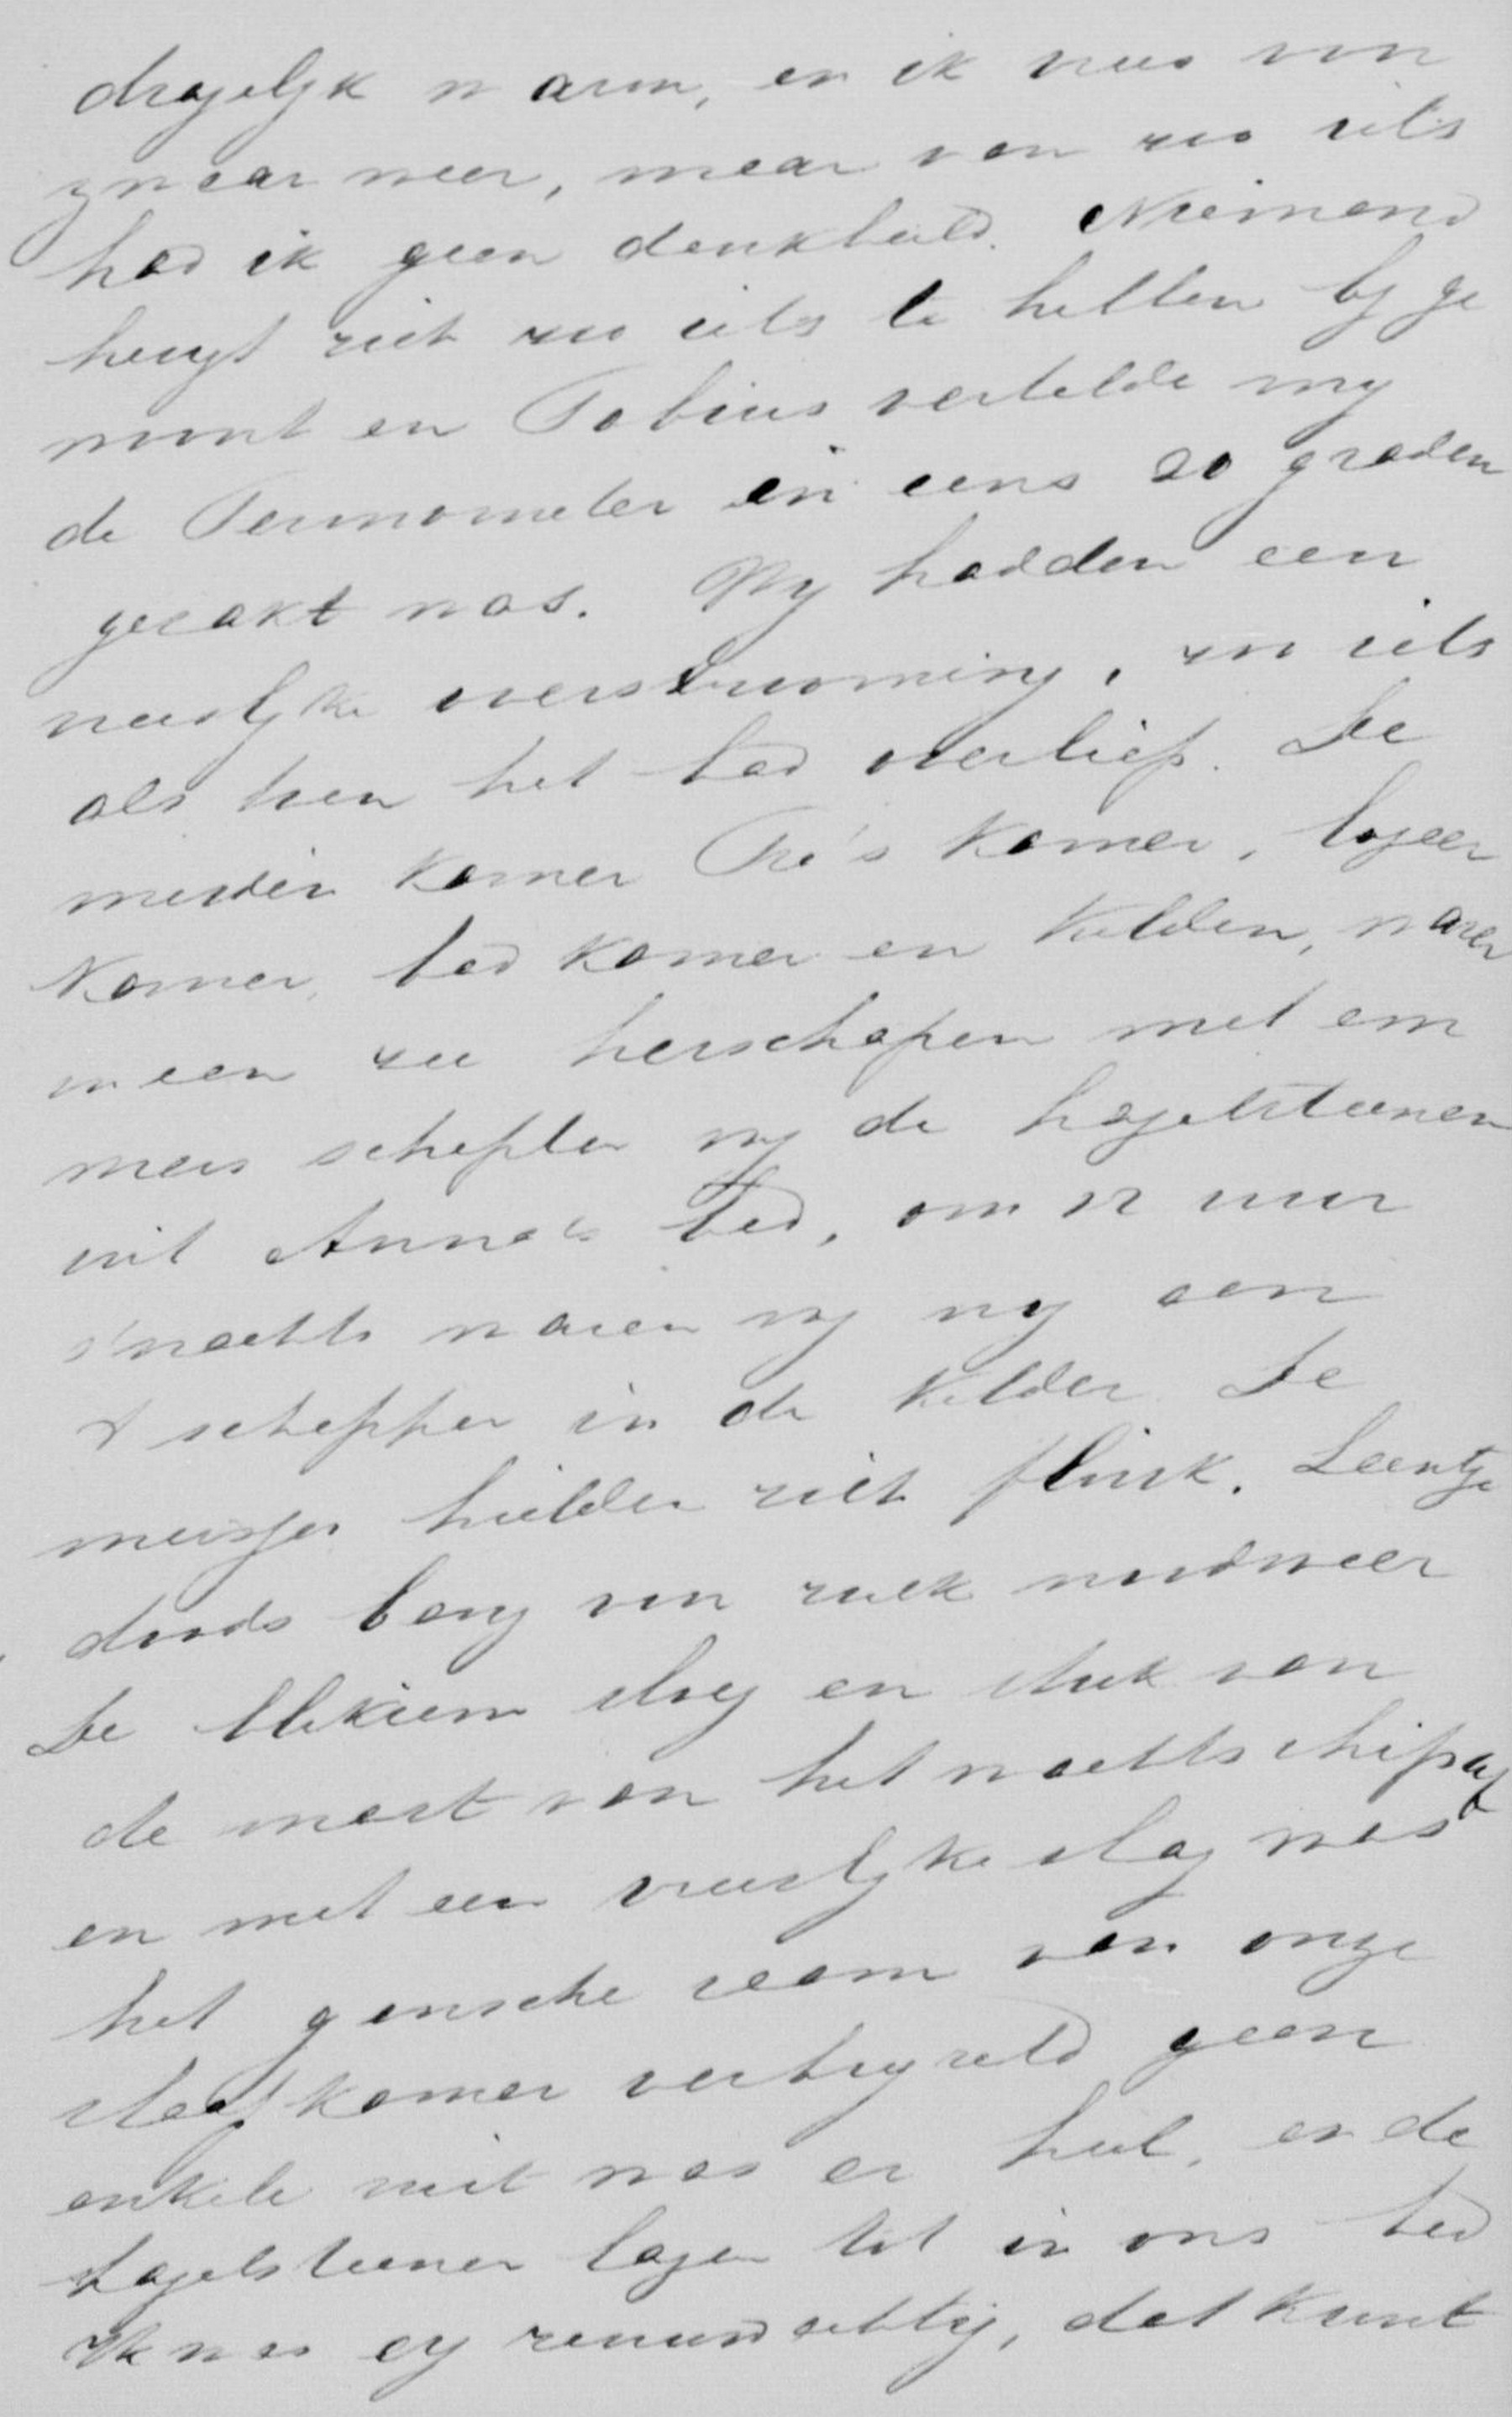 dragelyk warm, en ik vrees von
zwaar weer, maar van zoo iets
had ik geen denkbeeld. Niemand
heugt zich zoo iets te hebben byge
woont en Tobias vertelde my
de Termometer in eens 20 graden
gezakt was. Wy hadden een
vreeslyke overstrooming, zoo iets
als toen het bad overliep. De
meiden kamer Tré's kamer, logeer
kamer, bad kamer en kelder, waren
in een zee herschapen met em
mers schepten wy de hagelsteenen
uit Anna's bed, om 12 uur
s'nachts waren wy nog aan
't scheppen in de kelder. De
meisjes hielden zich flink. Leentje
doods bang von zulk noodweer
De bliksem sloeg en stuk van
de mast van het wachtschip af
en met een vreeslyke slag was
het gansche raam van onze
slaapkamer verbryzeld geen
enkele ruit was er heel, en de
hagelsteenen lagen tot in ons bed
Ik was erg zenuwachtig, dat kunt